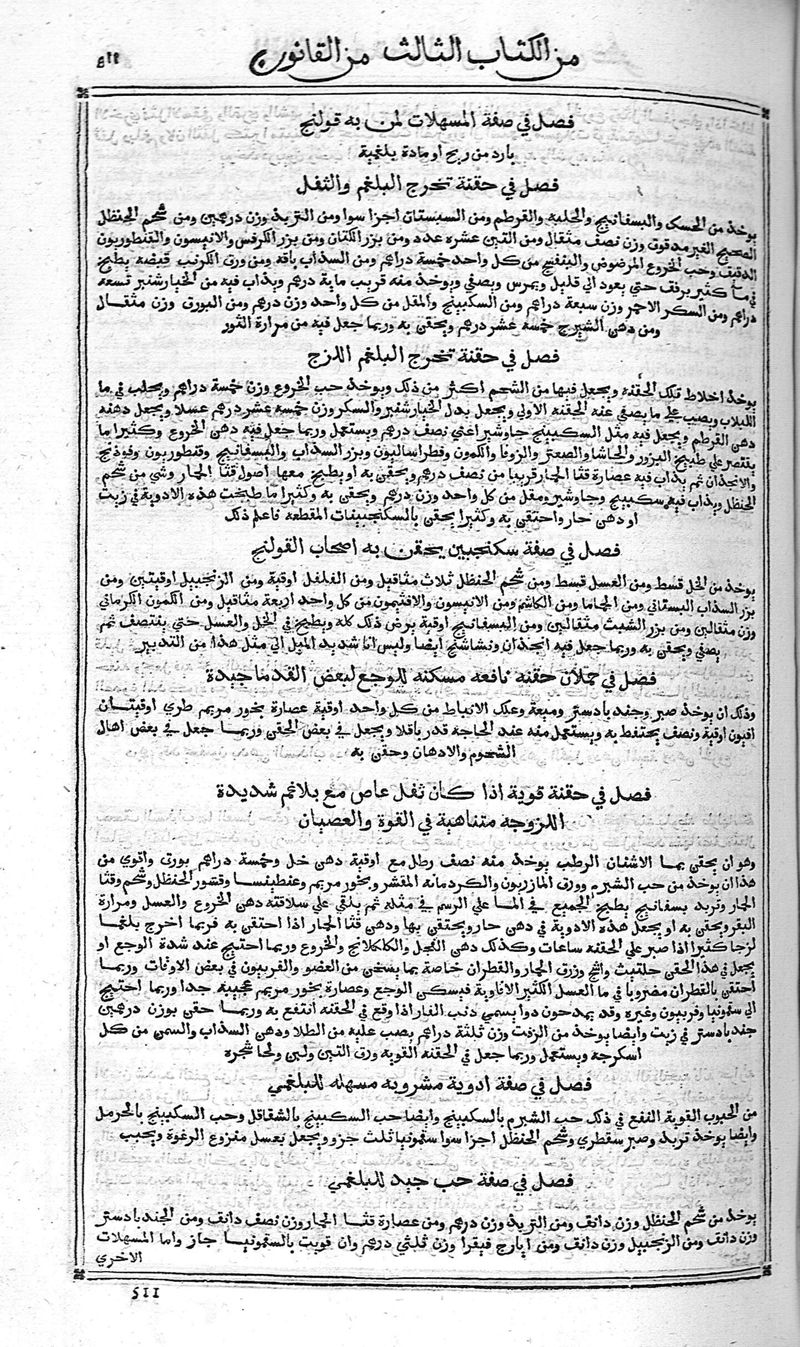 من الكتاب الثالث من القانون
٥١١
فصل في صفة المسهلات لمن به قولنج
بارد من ريح او مادة بلغمية
فصل في حقنة تخرج البلغم والثفل
يوخذ من الحسك والبسفانج والحلبه والقرطم ومن السبستان اجزا سوا ومن التربذ وزن درهمين ومن شحم الحنظل
الصحيح الغير مدقوق وزن نصف مثقال ومن التين عشره عدد ومن بزر الكتان ومن بزر الكرفس والانيسون والقنطوريون
الدقيق وحب الخروع المرضوض والبنفسج من كل واحد خمسة دراهم ومن السذاب باقه ومن ورق الكرنب قبضه يطبخ
في مآ كثير برفق حتى يعود الي قليل ويمرس ويصفي ويوخذ منه قريب ماية درهم ويذاب فيه من الخيارشنبر تسعة
دراهم ومن السكر الاحمر وزن سبعة دراهم ومن السكبينج والمقل من كل واحد وزن درهم ومن البورق وزن مثقال
ومن دهن الشيرج خمسه عشر درهم ويحقن به وربما جعل فيه من مرارة الثور
فصل في حقنة تخرج البلغم اللزج
يوخذ اخلاط تلك الحقنه ويجعل فيها من الشحم اكثر من ذلك ويوخذ حب الخروع وزن خمسة دراهم ويحلب في ما
اللبلاب ويصب علي ما يصفي عنه الحقنه الاولي ويجعل بدل الخيارشنبر والسكر وزن خمسه عشر درهم عسلا ويجعل دهنه
دهن القرطم ويجعل فيه مثل السكبينج جاوشير اعني نصف درهم ويستعمل وربما جعل فيه دهن الخروع وكثيرا ما
يقتصر علي طبيخ البزور والحاشا والصعتر والزوفا والكمون وفطراساليون وبزر السذاب والبسفانج وقنطوريون وفوذنج
والانجذان ثم يذاب فيه عصارة قثا الحمار قريبا من نصف درهم ويحقن به او يطبخ معها اصول قثا الحمار وشي من شحم
الحنظل ويذاب فيه سكبينج وجاوشير ومقل من كل واحد وزن درهم ويحقن به وكثيرا ما طبخت هذه الادوية في زيت
او دهن حار واحتقن به وكثيرا يحقن بالسكنجبينات المقطعه فاعلم ذلك
فصل في صفة سكنجبين يحقن به اصحاب القولنج
يوخذ من الخل قسط ومن العسل قسط ومن شحم الحنظل ثلاث مثاقيل ومن الفلفل اوقية ومن الزنجبيل اوقيتين ومن
بزر السذاب البستاني ومن الحماما ومن الكاشم ومن الانيسون والافتيمون من كل واحد اربعة مثاقيل ومن الكمون الكرماني
وزن مثقالين ومن بزر الشبث مثقالين ومن البسفانج اوقية يرض ذلك كله ويطبخ في الخل والعسل حتي ينتصف ثم
يصفي ويحقن به وربما جعل فيه انجذان ونشاشتج ايضا وليس انا شديد الميل الي مثل هذا من التدبير
فصل في حملان حقنه نافعه مسكنه للوجع لبعض القدما جيدة
وذلك ان يوخذ صبر وجندبادستر وميعة وعلك الانباط من كل واحد اوقية عصارة بخور مريم طري اوقيتان
افيون اوقية ونصف يحتفظ به ويستعمل منه عند الحاجه قدر باقلا ويجعل في بعض الحقن وربما جعل في بعض اهال
الشحوم والادهان وحقن به
فصل في حقنة قوية اذا كان ثفل عاص مع بلاغم شديدة
اللزوجه متناهية في القوة والعصيان
وهو ان يحقن بما الاشنان الرطب يوخذ منه نصف رطل مع اوقية دهن خل وخمسة دراهم بورق واقوي من
هذا ان يوخذ من حب الشبرم وورق المازريون والكردمانه المقشر وبخور مريم وعنطنيسا وقشور الحنظل وشحم وقثا
الحمار وتربد بسفانج يطبخ الجميع في الما علي الرسم في مثله ثم يلقي علي سلاقته دهن الخروع والعسل ومرارة
البقر ويحقن به او يجعل هذه الادوية في دهن حار ويحتقن بها ودهن قثا الحمار اذا احتقن به فربما اخرج بلغما
لزجا كثيرا اذا صبر علي الحقنه ساعات وكذلك دهن الفجل والكلكلانج والخروع وربما احتيج عند شدة الوجع او
يجعل في هذا الحقن حلتيث واشج وزرق الحمار والقطران خاصة بما يسخن من العضو والفربيون في بعض الاوقات وربما
احتقن بالقطران مضروبا في ما العسل الكثير الافاوية فيسكن الوجع وعصارة بخور مريم عجيبه جدا وربما احتيج
الي سقمونيا وفربيون وغيره وقد يمدحون دوا يسمي ذنب الفار اذا وقع في الحقنه انتفع به وربما حقن بوزن درهمين
جندبادستر في زيت وايضا يوخذ من الزفت وزن ثلثة دراهم يصب عليه من الطلا ودهن السذاب والسمن من كل
اسكرجه ويستعمل وربما جعل في الحقنه القويه ورق التين ولبن ولحا شجره
فصل في صفة ادوية مشروبه مسهله للبلغمي
من الحبوب القوية النفع في ذلك حب الشبرم بالسكبينج وايضا حب السكبينج بالشقاقل وحب السكبينج بالحرمل
وايضا يوخذ تربد وصبر سقطري وشحم الحنظل اجزا سوا سقمونيا ثلث جزو ويجعل بعسل منزوع الرغوة ويحبب
فصل في صفة حب جيد للبلغمي
يوخذ من شحم الحنظل وزن دانق ومن التربذ وزن درهم ومن عصارة قثا الحمار وزن نصف دانق ومن الجندبادستر
وزن دانق ومن الزنجبيل وزن دانق ومن ايارج فيقرا وزن ثلثي درهم وان قويت بالسقمونيا جاز واما المسهلات
الاخري
511